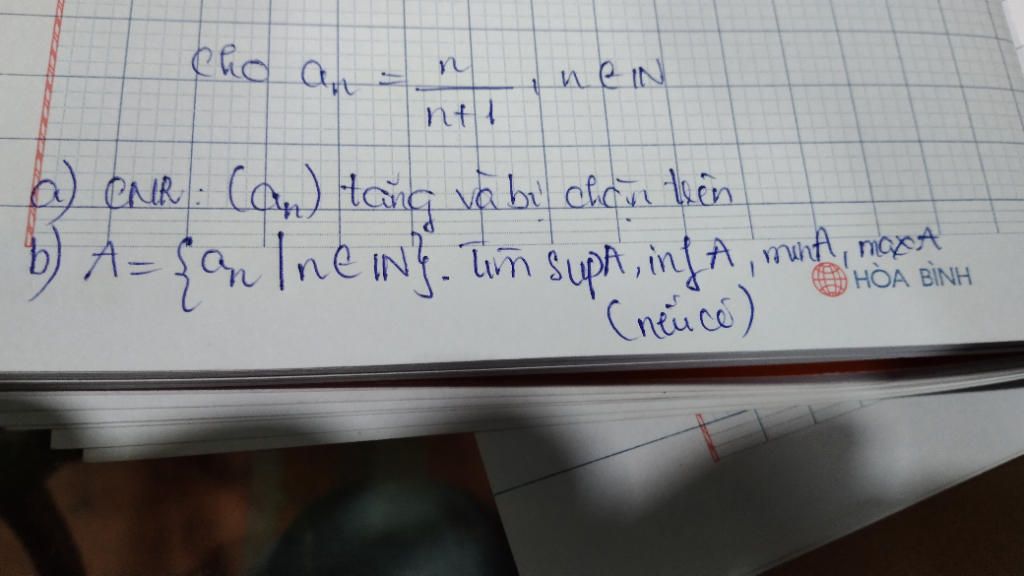 Cho aₙ = n/(n+1), n ∈ ℕ
a) CMR: (aₙ) tăng và bị chặn trên
b) A = {aₙ | n ∈ ℕ}. Tìm supA, infA, minA, maxA
HÒA BÌNH
(nếu có)